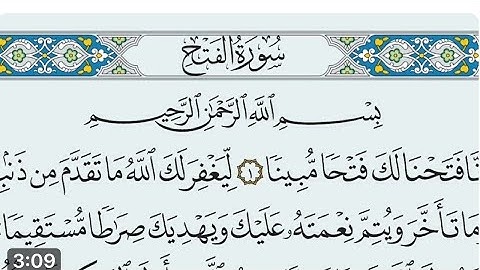 سُورَةُ الفَتْحِ
بِسْمِ اللَّهِ الرَّحْمَٰنِ الرَّحِيمِ
نَّا فَتَحْنَا لَكَ فَتْحًا مُّبِينًا ١ لِّيَغْفِرَ لَكَ اللَّهُ مَا تَقَدَّمَ مِن ذَنۢبِ
مَا تَأَخَّرَ وَيُتِمَّ نِعْمَتَهُۥ عَلَيْكَ وَيَهْدِيَكَ صِرَٰطًا مُّسْتَقِيمًا
3:09